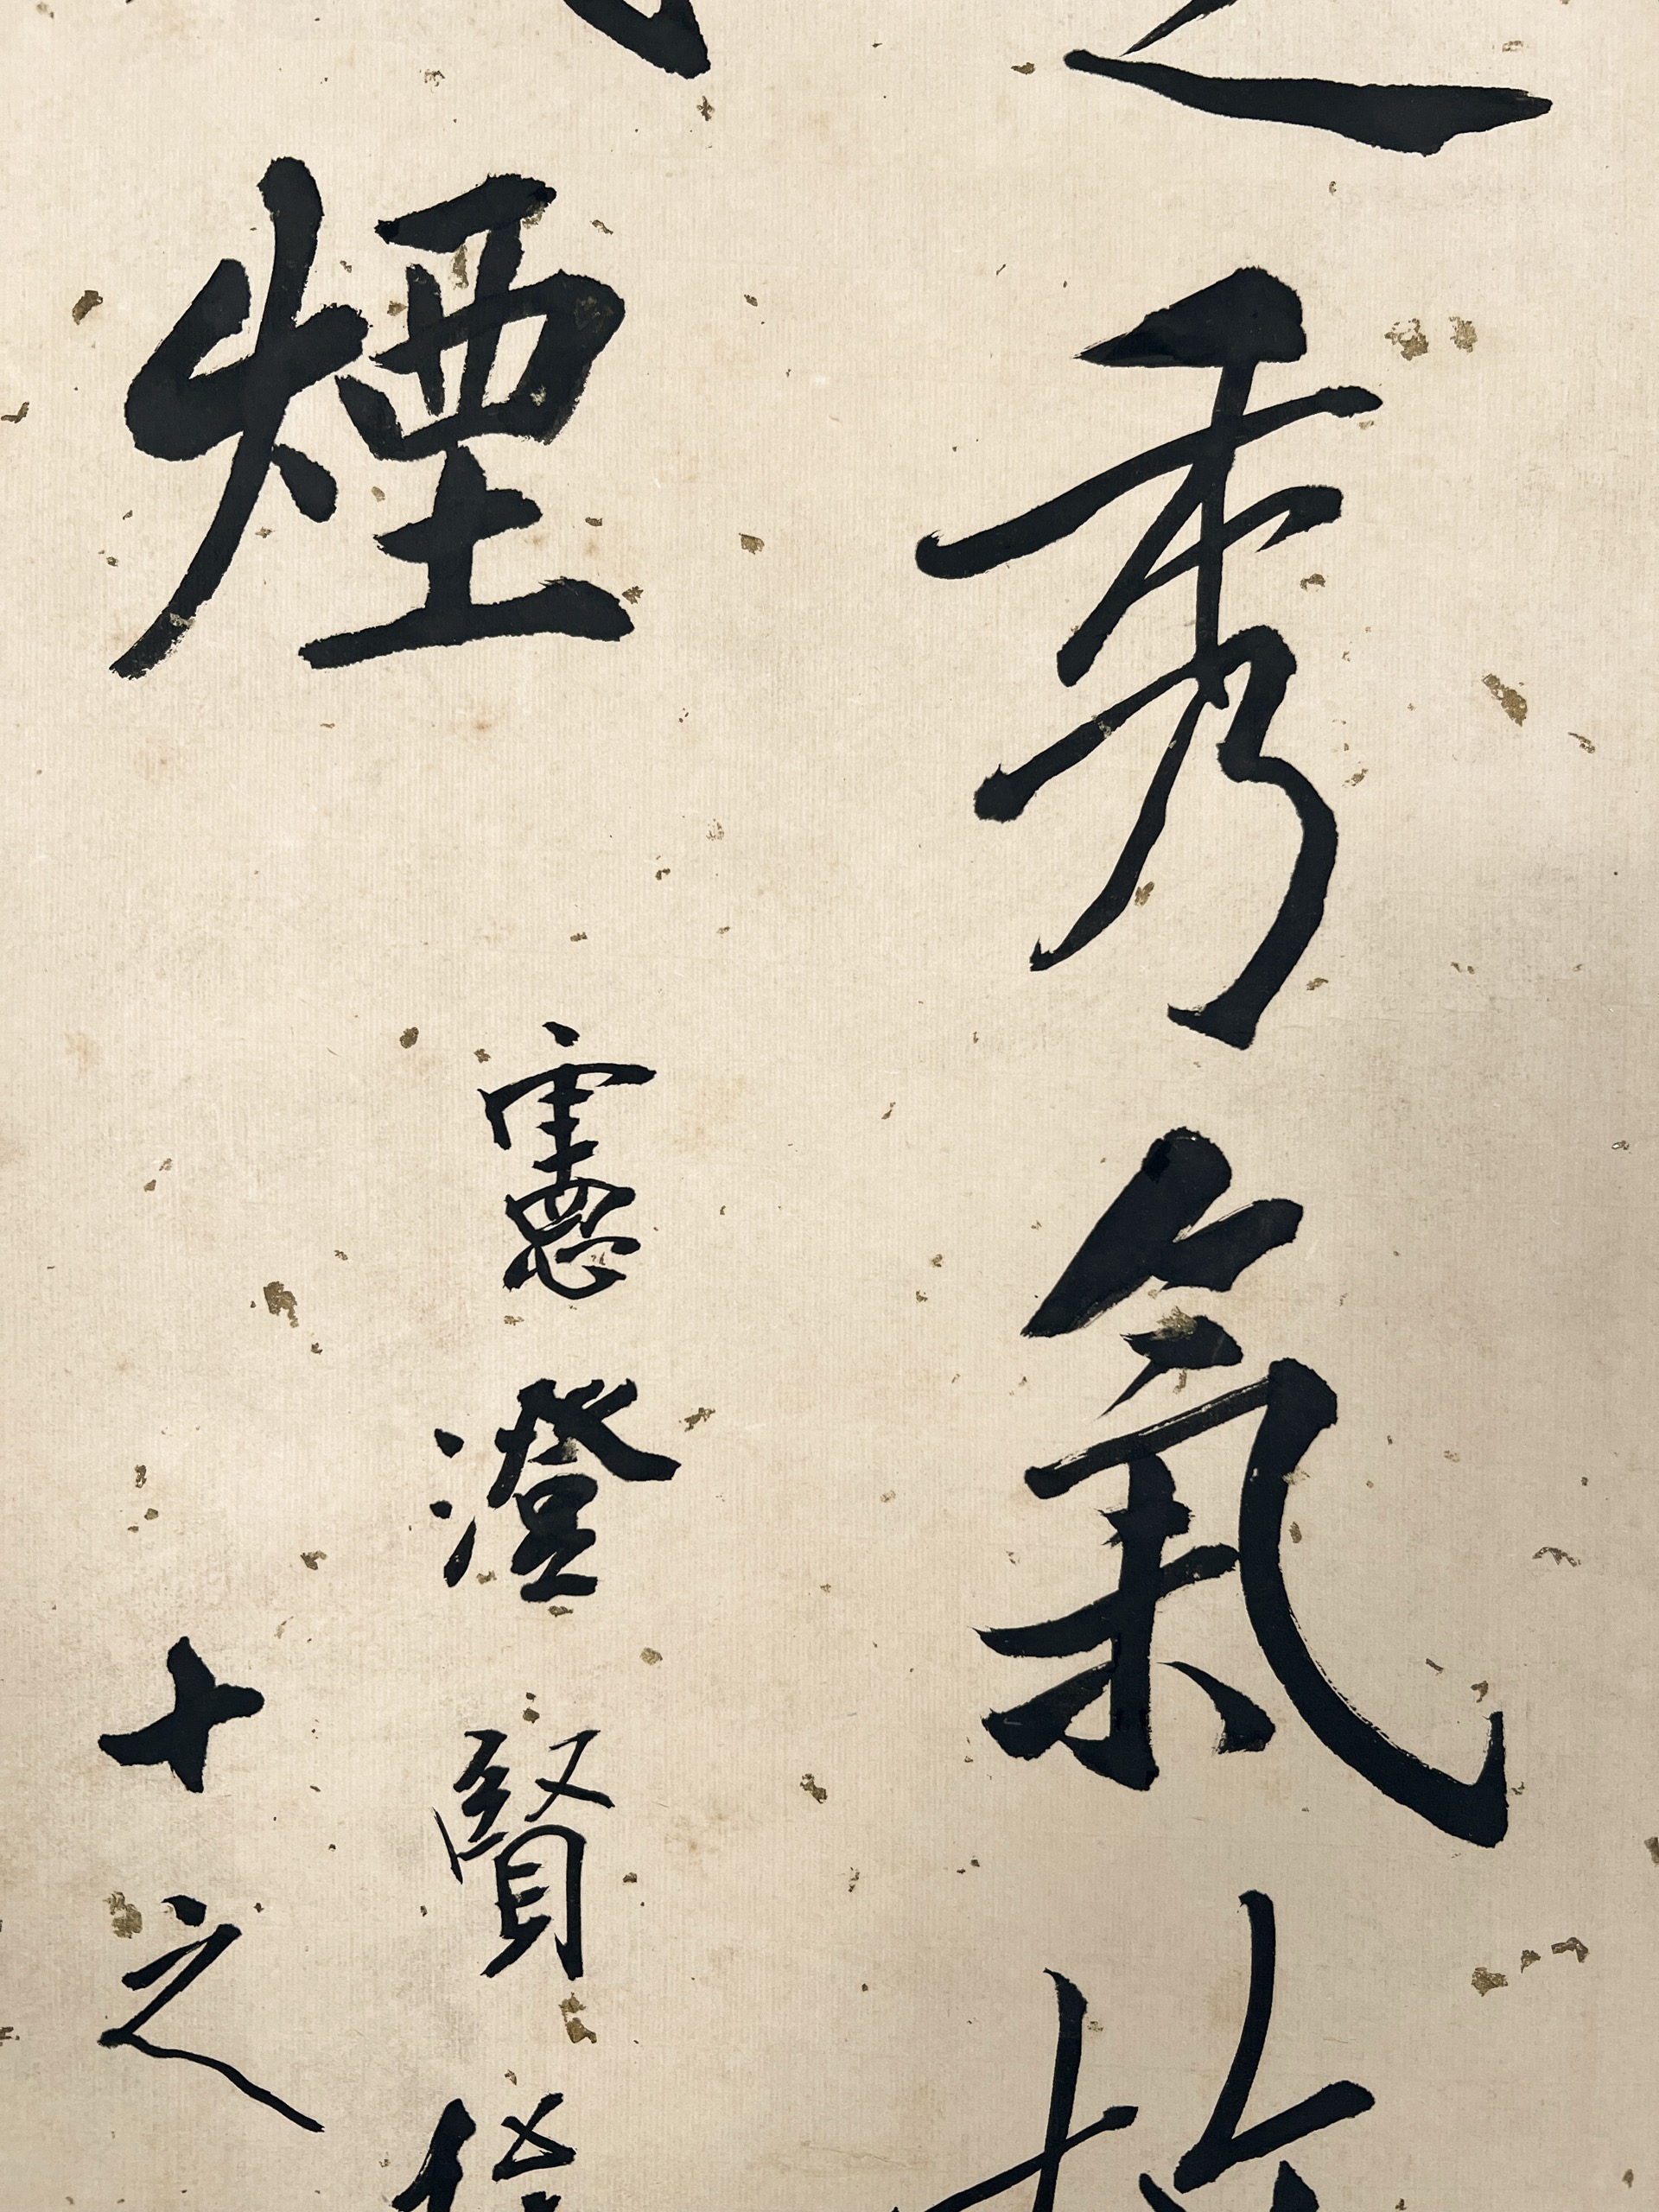 之秀氣
煙
憲澄賢
十之